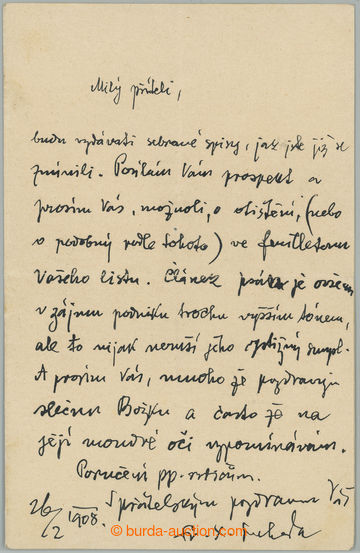 Milý příteli,
budu vydávati sebrané spisy, jak jste již se
zmínili. Posílám Vám prospekt a
prosím Vás, možnoli, o otištění, (nebo
o podobný podle tohoto) ve feuilletonu
Vašeho listu. Článek psán je ovšem
v zájmu podniku trochu vyšším tónem,
ale to nijak neruší jeho smysl.
A prosím Vás, mnoho že pozdravuji
slečnu Božku a často že na
její moudré oči vzpomínávám.
Poručení pp.
S přátelským pozdravem Váš
26/2 1908.
© burda-auction.com